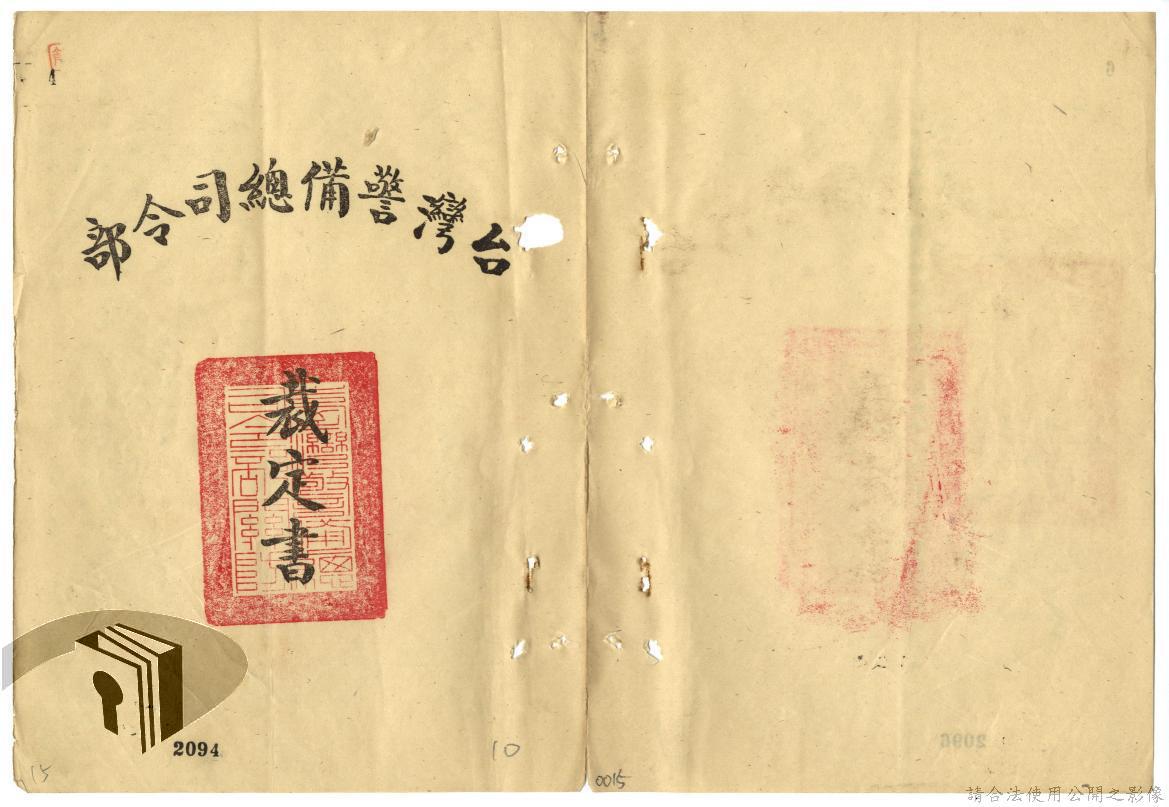 台灣警備總司令部
裁定書
4
2094
10
15
0015
6
2096
請合法使用公開之影像